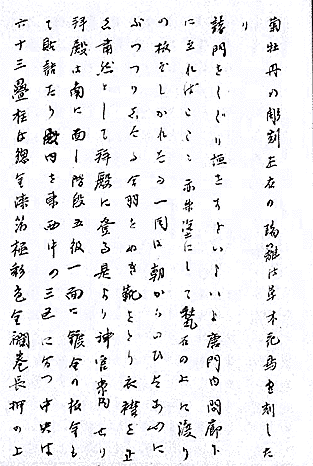 菊牡丹の彫刻左右の瑞籬は草木花鳥を刻した
り
諸門をくぐり垣をすぎいよいよ唐門内間廊下
に至ればここに赤井塗にして甃石の上に渡り
の板をしかれたる一同は朝からのひたあめに
ぶつつりぬれたる合羽をぬぎ靴をとり衣襟を正
し粛然として拝殿に登る是より神官案内せり
拝殿は南に面し階段五級一面に鍍金の板金も
て貼詰たり殿内を東西中の三区に分つ中央は
六十三畳柱は総金漆箔極彩色金襴巻長押の上